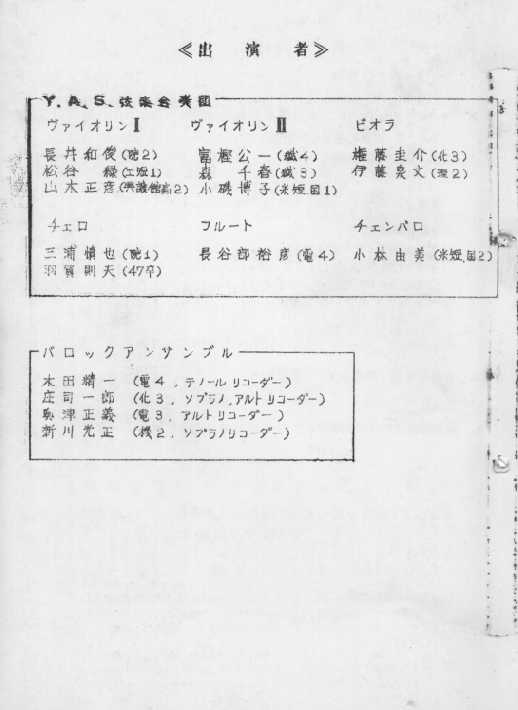 ≪出演者≫
Y.A.S.弦楽合奏団
ヴァイオリンⅠ ヴァイオリンⅡ ビオラ
長井和俊(院2) 富樫公一(繊4) 権藤圭介(化3)
松谷緑(工短1) 森千春(繊3) 伊藤晃文(理2)
山木正彦(2) 小磯博子(米短国1)
チェロ フルート チェンバロ
三浦慎也(院1) 長谷部裕彦(電4) 小林由美(米短国2)
羽賀則天(47卒)
バロックアンサンブル
木田精一(電4,テノールリコーダー)
庄司一郎(化3,ソプラノ,アルトリコーダー)
奥津正義(電3,アルトリコーダー)
新川光正(機2,ソプラノリコーダー)